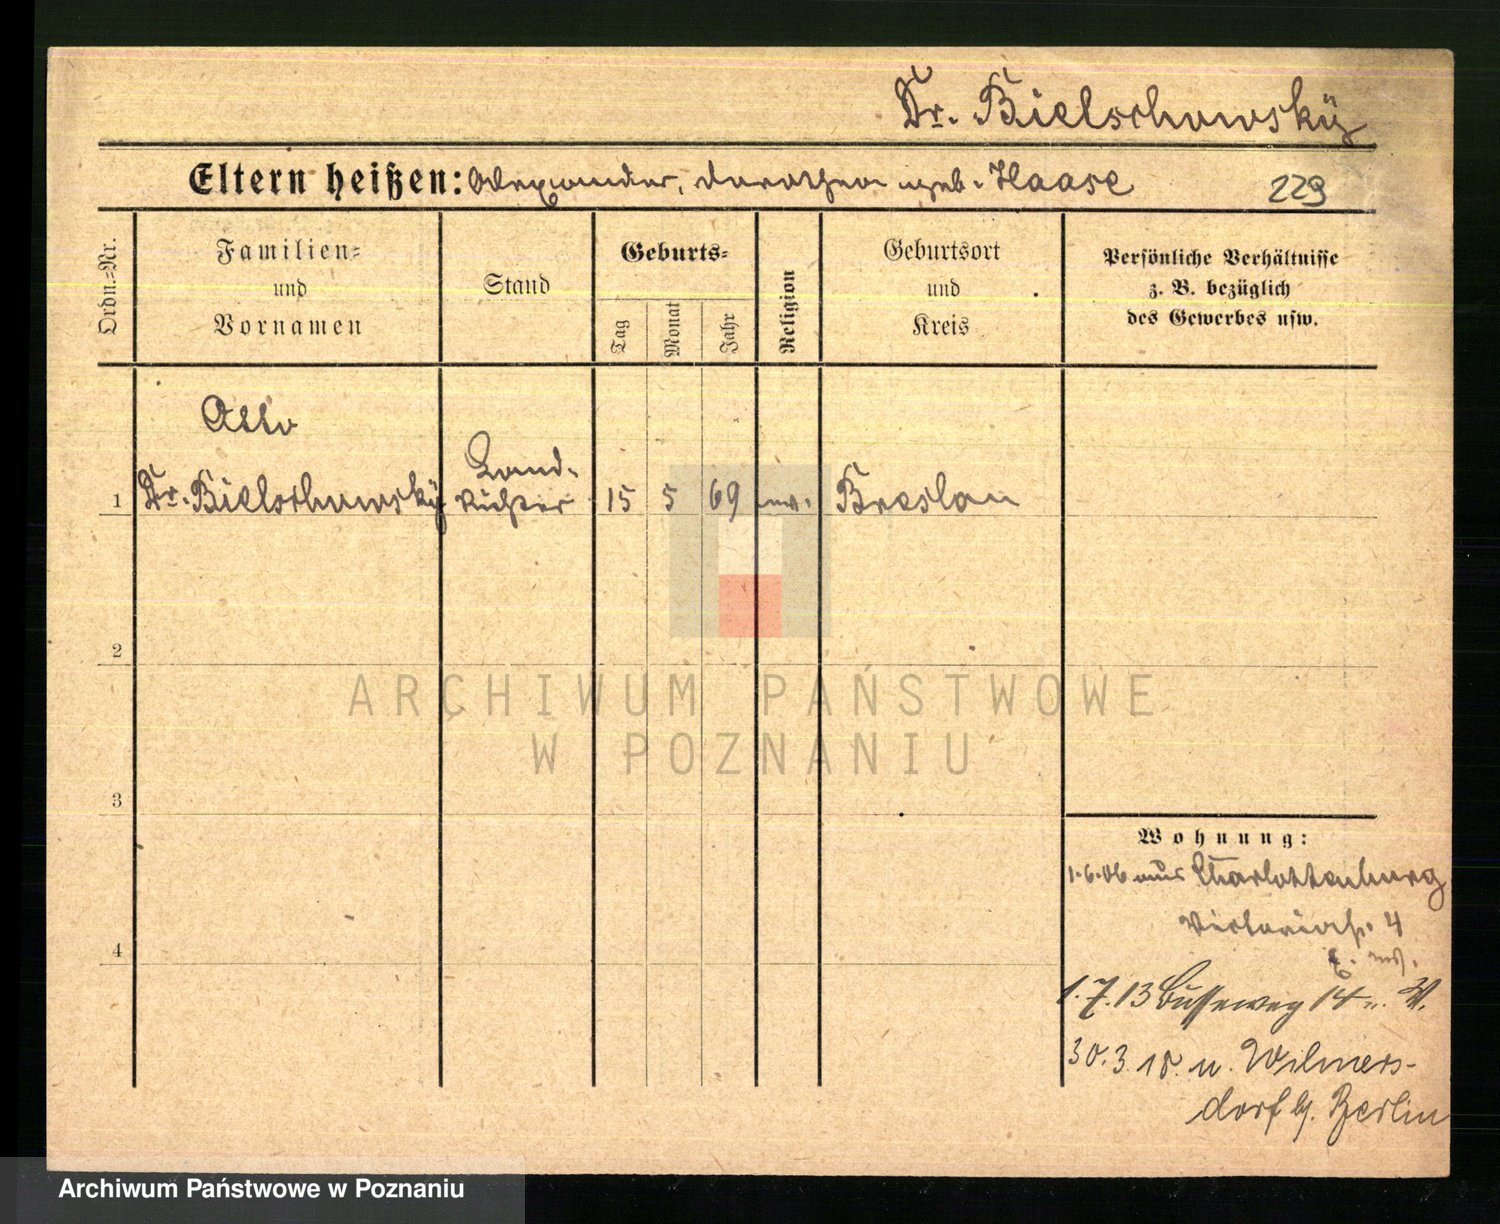 Dr. Bielschowsky
Eltern heißen: Alexander, Dorothea geb. Haase 229
Ordn.=Nr.
Familien=
und
Vornamen
Stand
Geburts=
Tag
Monat
Jahr
Religion
Geburtsort
und
Kreis
Persönliche Verhältnisse
z. B. bezüglich
des Gewerbes usw.
Otto
1 Dr. Bielschowsky Land-
richter 15 5 69 ev. Breslau
2
3
4
Wohnung:
1.6.06 aus Charlottenburg
Victoriastr. 4
1.7.13 Busseweg 14 u. W.
30.3.18. n. Wilmers-
dorf b/. Berlin
ARCHIWUM PAŃSTWOWE
W POZNANIU
Archiwum Państwowe w Poznaniu